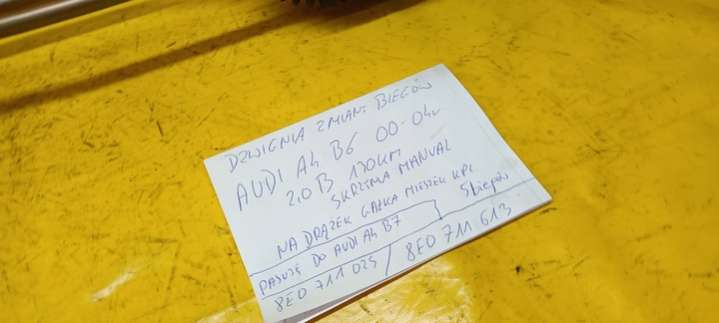 DZWIGNIA ZMIANY BIEGÓW
AUDI A4 B6 00-04r
2,0B 130KM
SKRZYNIA MANUAL
5 biegów
NA DRĄŻEK GAŁKA MIESZEK KPL
PASUJE DO AUDI A4 B7
8E0 711 025 / 8E0 711 613